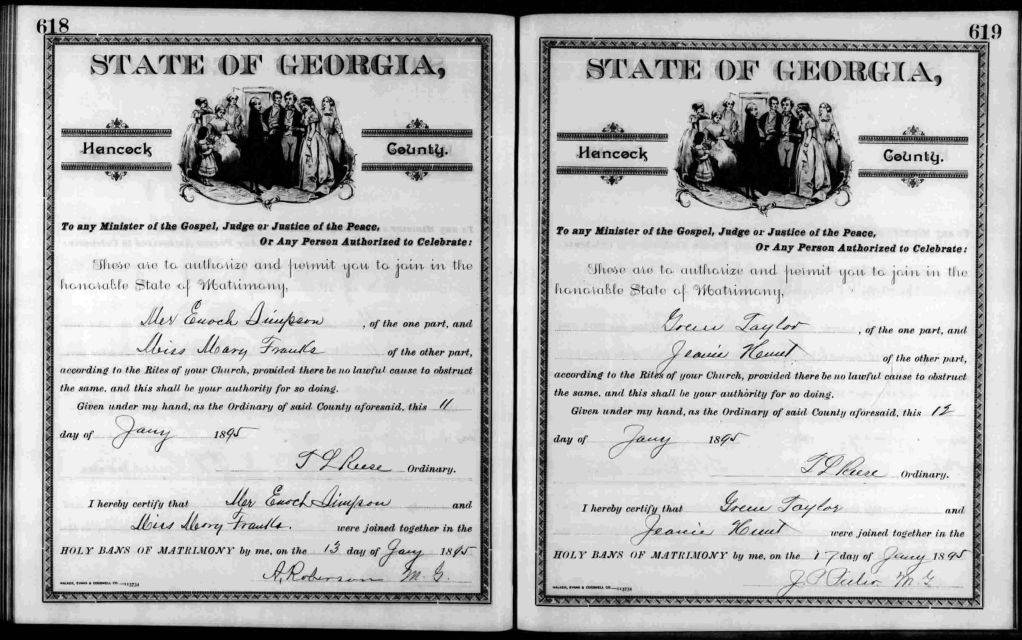 618
STATE OF GEORGIA,
Hancock County.
To any Minister of the Gospel, Judge or Justice of the Peace,
Or Any Person Authorized to Celebrate:
These are to authorize and permit you to join in the
honorable State of Matrimony,
Mr Enoch Simpson , of the one part, and
Miss Mary Franks of the other part,
according to the Rites of your Church, provided there be no lawful cause to obstruct
the same, and this shall be your authority for so doing.
Given under my hand, as the Ordinary of said County aforesaid, this 11
day of Jany 1895
T L Reese Ordinary.
I hereby certify that Mr Enoch Simpson and
Miss Mary Franks. were joined together in the
HOLY BANS OF MATRIMONY by me, on the 13 day of Jany 1895
A. Roberson M. G.
WALKER, EVANS & COGSWELL CO.
619
STATE OF GEORGIA,
Hancock County.
To any Minister of the Gospel, Judge or Justice of the Peace,
Or Any Person Authorized to Celebrate:
These are to authorize and permit you to join in the
honorable State of Matrimony,
Green Taylor , of the one part, and
Jeanie Hunt of the other part,
according to the Rites of your Church, provided there be no lawful cause to obstruct
the same, and this shall be your authority for so doing.
Given under my hand, as the Ordinary of said County aforesaid, this 12
day of Jany 1895
T L Reese Ordinary.
I hereby certify that Green Taylor and
Jeanie Hunt were joined together in the
HOLY BANS OF MATRIMONY by me, on the 17 day of Jany 1895
M G
WALKER, EVANS & COGSWELL CO.